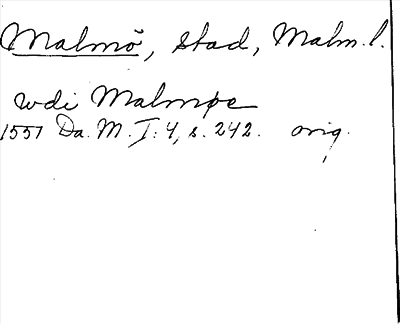 Malmö, stad, Malm. l.
wdi Malmøe
1557 Da. M. I: 4, s. 242. orig.